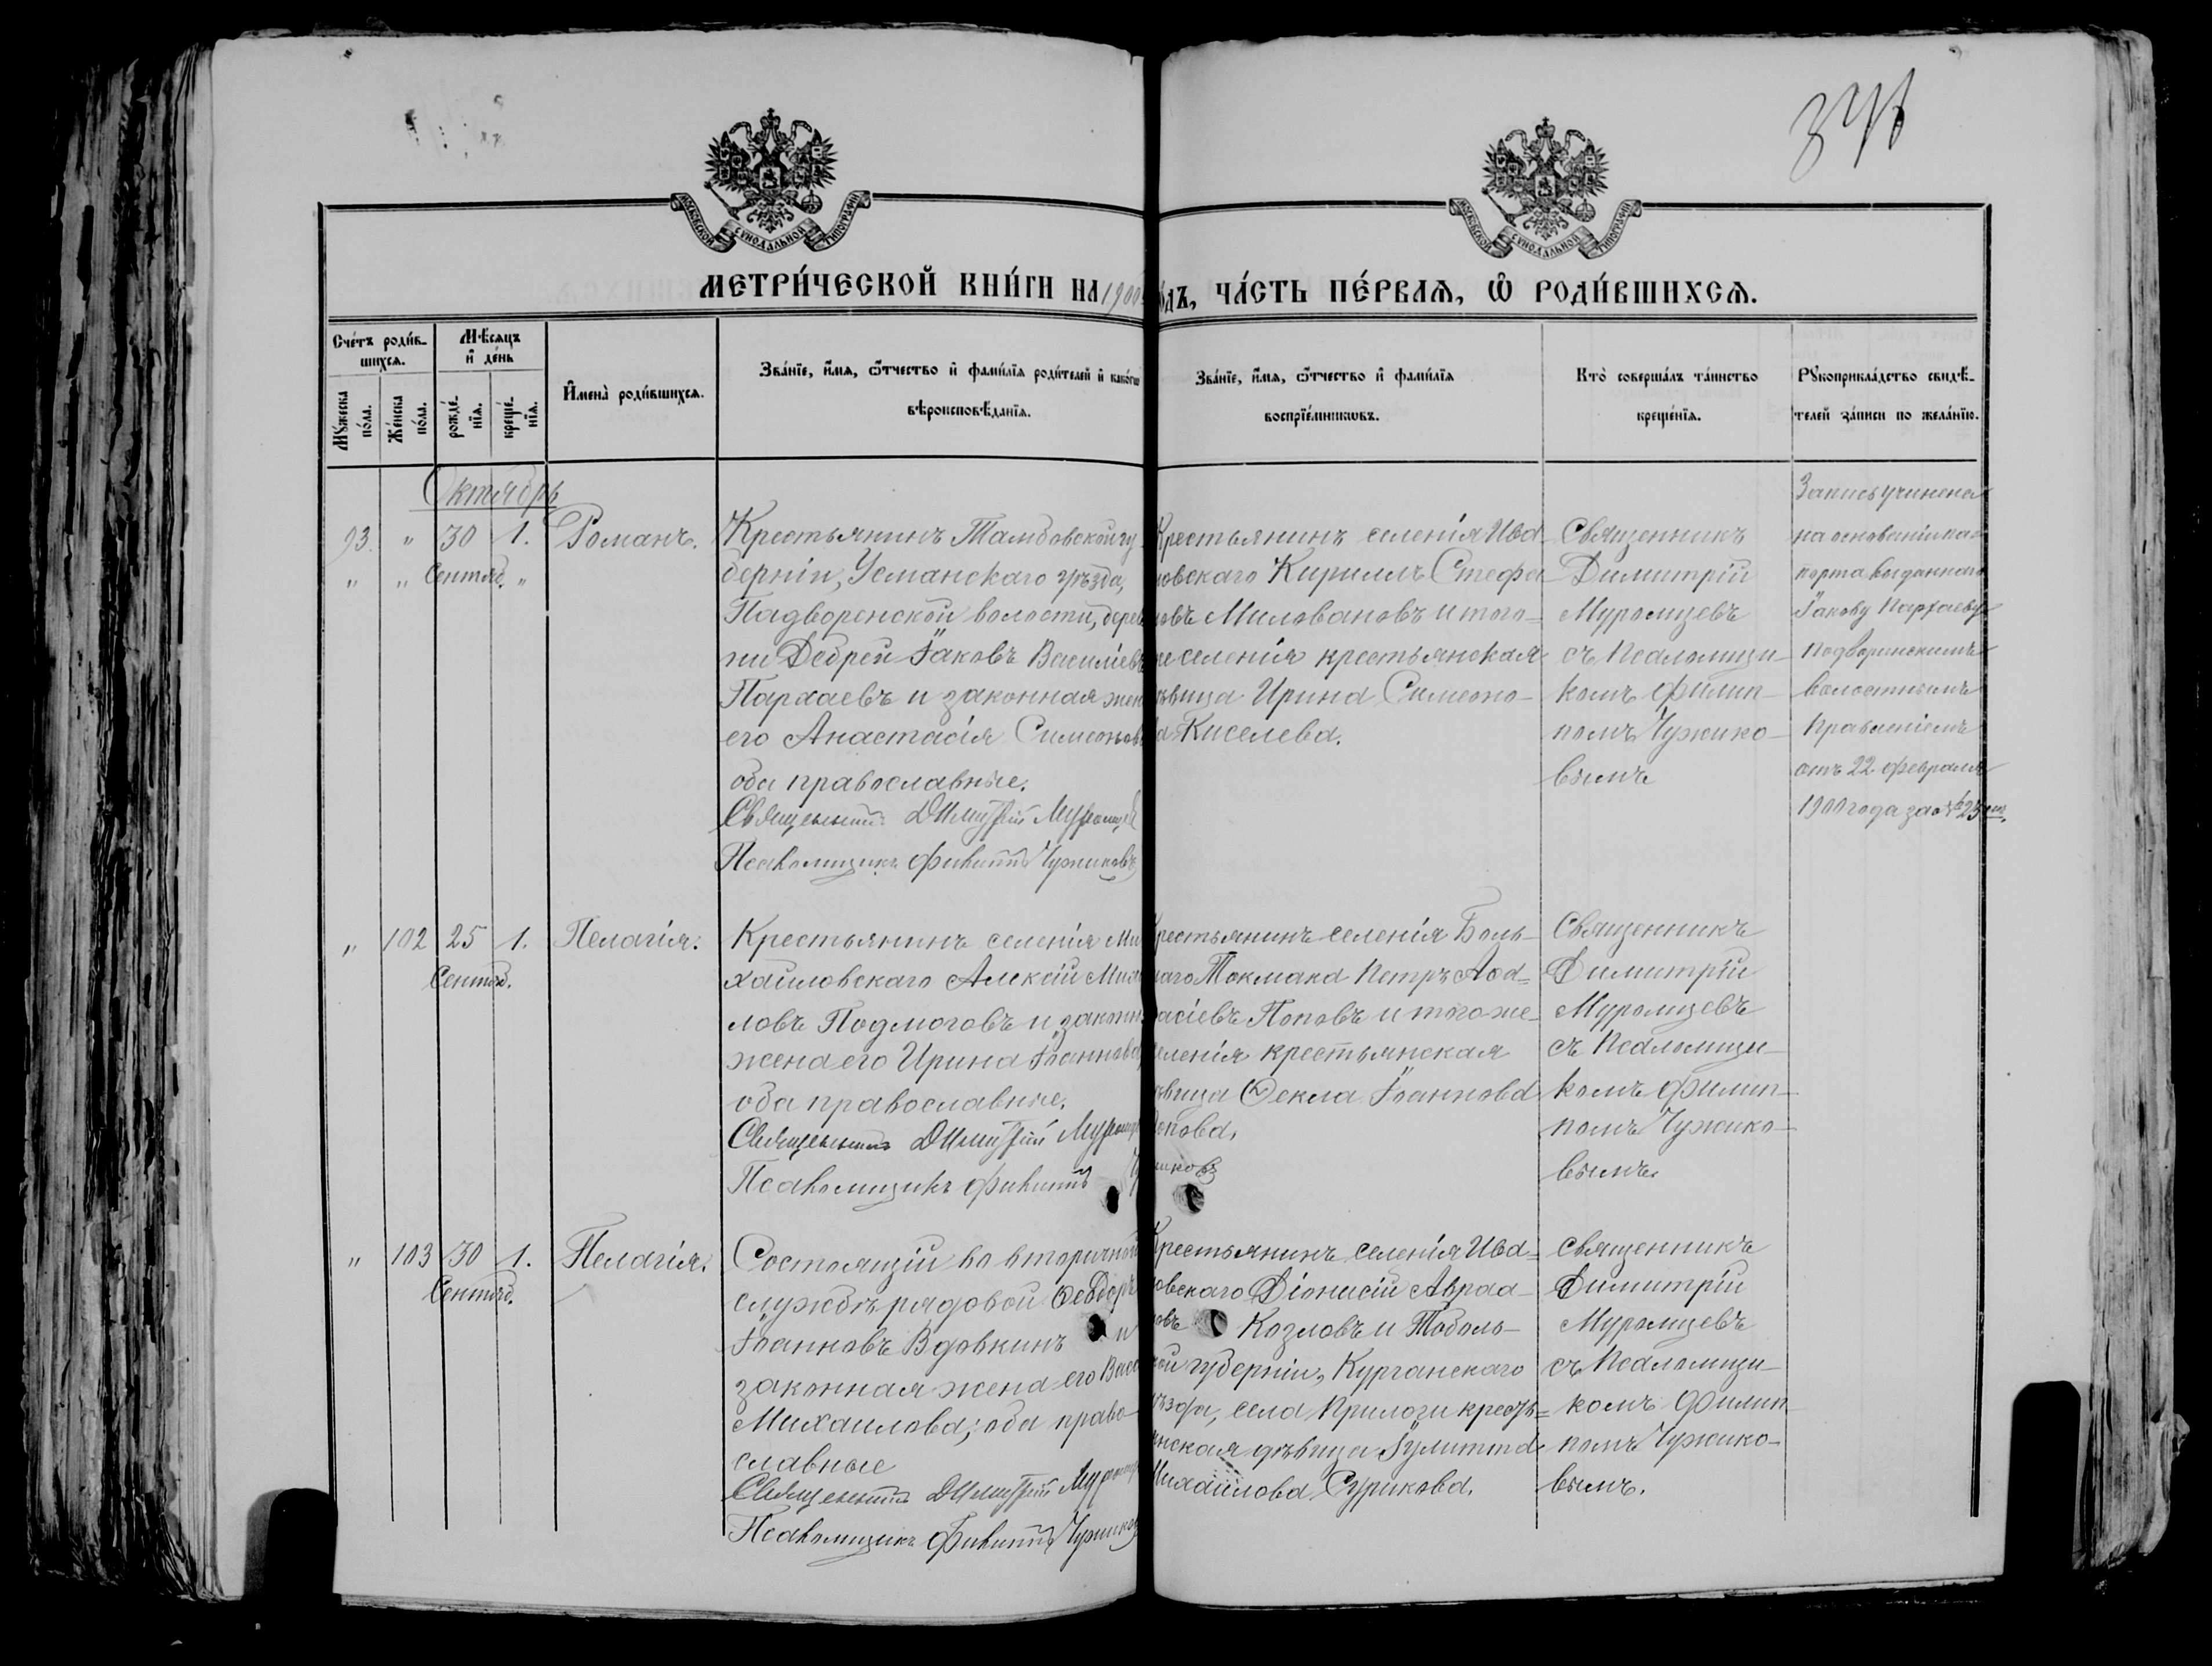 376
МОСКОВСКОЙ СѴНОДАЛЬНОЙ ТИПОГРАФІИ
МОСКОВСКОЙ СѴНОДАЛЬНОЙ ТИПОГРАФІИ
МЕТРИ́ЧЕСКОЙ КНИ́ГИ НА 1900 ГОДЪ, ЧА́СТЬ ПЕ́РВАЯ, Ѽ РОДИ́ВШИХСЯ.
Сче́тъ роди́в-
шихся.
Мꙋ́жеска по́ла.
Же́нска по́ла.
Мѣ́сяцъ
и҆ де́нь
рожде́-
нїя.
креще́-
нїя.
И҆мена̀ роди́вшихся.
Зва́нїе, и҆́мя, ѻ҆́тчество и҆ фами́лїя роди́телей и҆ како́гѡ
вѣроисповѣ́данїя.
Зва́нїе, и҆́мя, ѻ҆́тчество и҆ фами́лїя
воспрїе́мникѡвъ.
Кто̀ соверша́лъ та́инство
креще́нїя.
Рꙋкоприкла́дство свидѣ́-
телей за́писи по жела́нїю.
Октябрь
93. " 30 1.
" " Сентяб. "
Романъ.
Крестьянинъ Тамбовской гу
берніи, Усманскаго уѣзда,
Падворенской волости, дерев
ни Дебрей Іаковъ Василіевъ
Пархаевъ и законная жена
его Анастасія Симеонова
оба православные.
Священникъ Димитрій Муромцевъ
Псаломщикъ Филиппъ Чужиковъ
Крестьянинъ селенія Ива-
новскаго Кириллъ Стефа-
новъ Миловановъ и того-
же селенія крестьянская
дѣвица Ирина Симеоно-
ва Киселева.
Священникъ
Димитрій
Муромцевъ
съ Псаломщи-
комъ Филип-
помъ Чужико-
вымъ
Запись учинена
на основаніи пас
порта выданнаго
Іакову Пархаеву
Подворинскимъ
волостнымъ
Правленіемъ
отъ 22 февраля
1900 года за №
" 102 25 1.
Сентяб.
Пелагія.
Крестьянинъ селенія Ми
хайловскаго Алексій Михаи
ловъ Подмоговъ и законная
жена его Ирина Іоаннова
оба православные.
Священникъ Димитрій Муромцевъ
Псаломщикъ Филиппъ Чужиковъ
Крестьянинъ селенія Боль-
шаго Токмака Петръ
Поповъ и того же
селенія крестьянская
дѣвица Ѳекла Іоаннова
Попова.
Священникъ
Димитрій
Муромцевъ
съ Псаломщи-
комъ Филип-
помъ Чужико-
вымъ.
" 103 30 1.
Сентяб.
Пелагія.
Состоящій во вторичной
службѣ рядовой Ѳеодоръ
Іоанновъ Вдовкинъ и
законная жена его Васса
Михаилова; оба право-
славные
Священникъ Димитрій Муромцевъ
Псаломщикъ Филиппъ Чужиковъ
Крестьянинъ селенія Ива-
новскаго Діонисій Авраа-
мовъ Козловъ и Тоболь-
ской губерніи, Курганскаго
уѣзда, села Прилоги кресть-
янская дѣвица Іулитта
Михаилова Сурикова.
Священникъ
Димитрій
Муромцевъ
съ Псаломщи-
комъ Филип-
помъ Чужико-
вымъ.